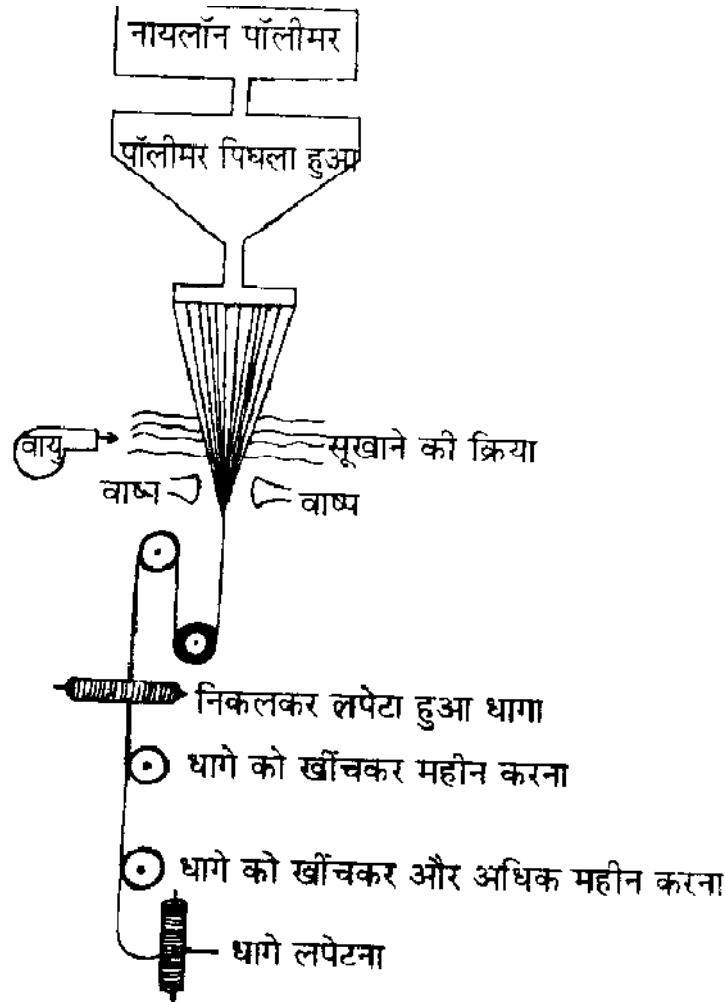 नायलॉन पॉलीमर
पॉलीमर पिघला हुआ
वायु
सूखाने की क्रिया
वाष्प
वाष्प
निकलकर लपेटा हुआ धागा
धागे को खींचकर महीन करना
धागे को खींचकर और अधिक महीन करना
धागे लपेटना